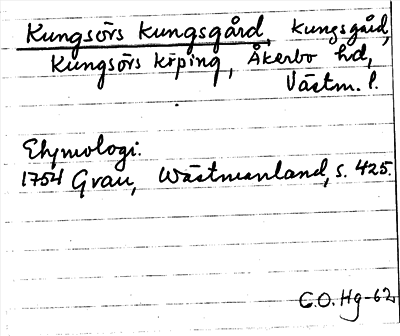 Kungsörs kungsgård, kungsgård,
Kungsörs köping, Åkerbo hd,
Västm. l.
Etymologi.
1754 Grau, Wästmanland, s. 425.
C.O. Hg-62